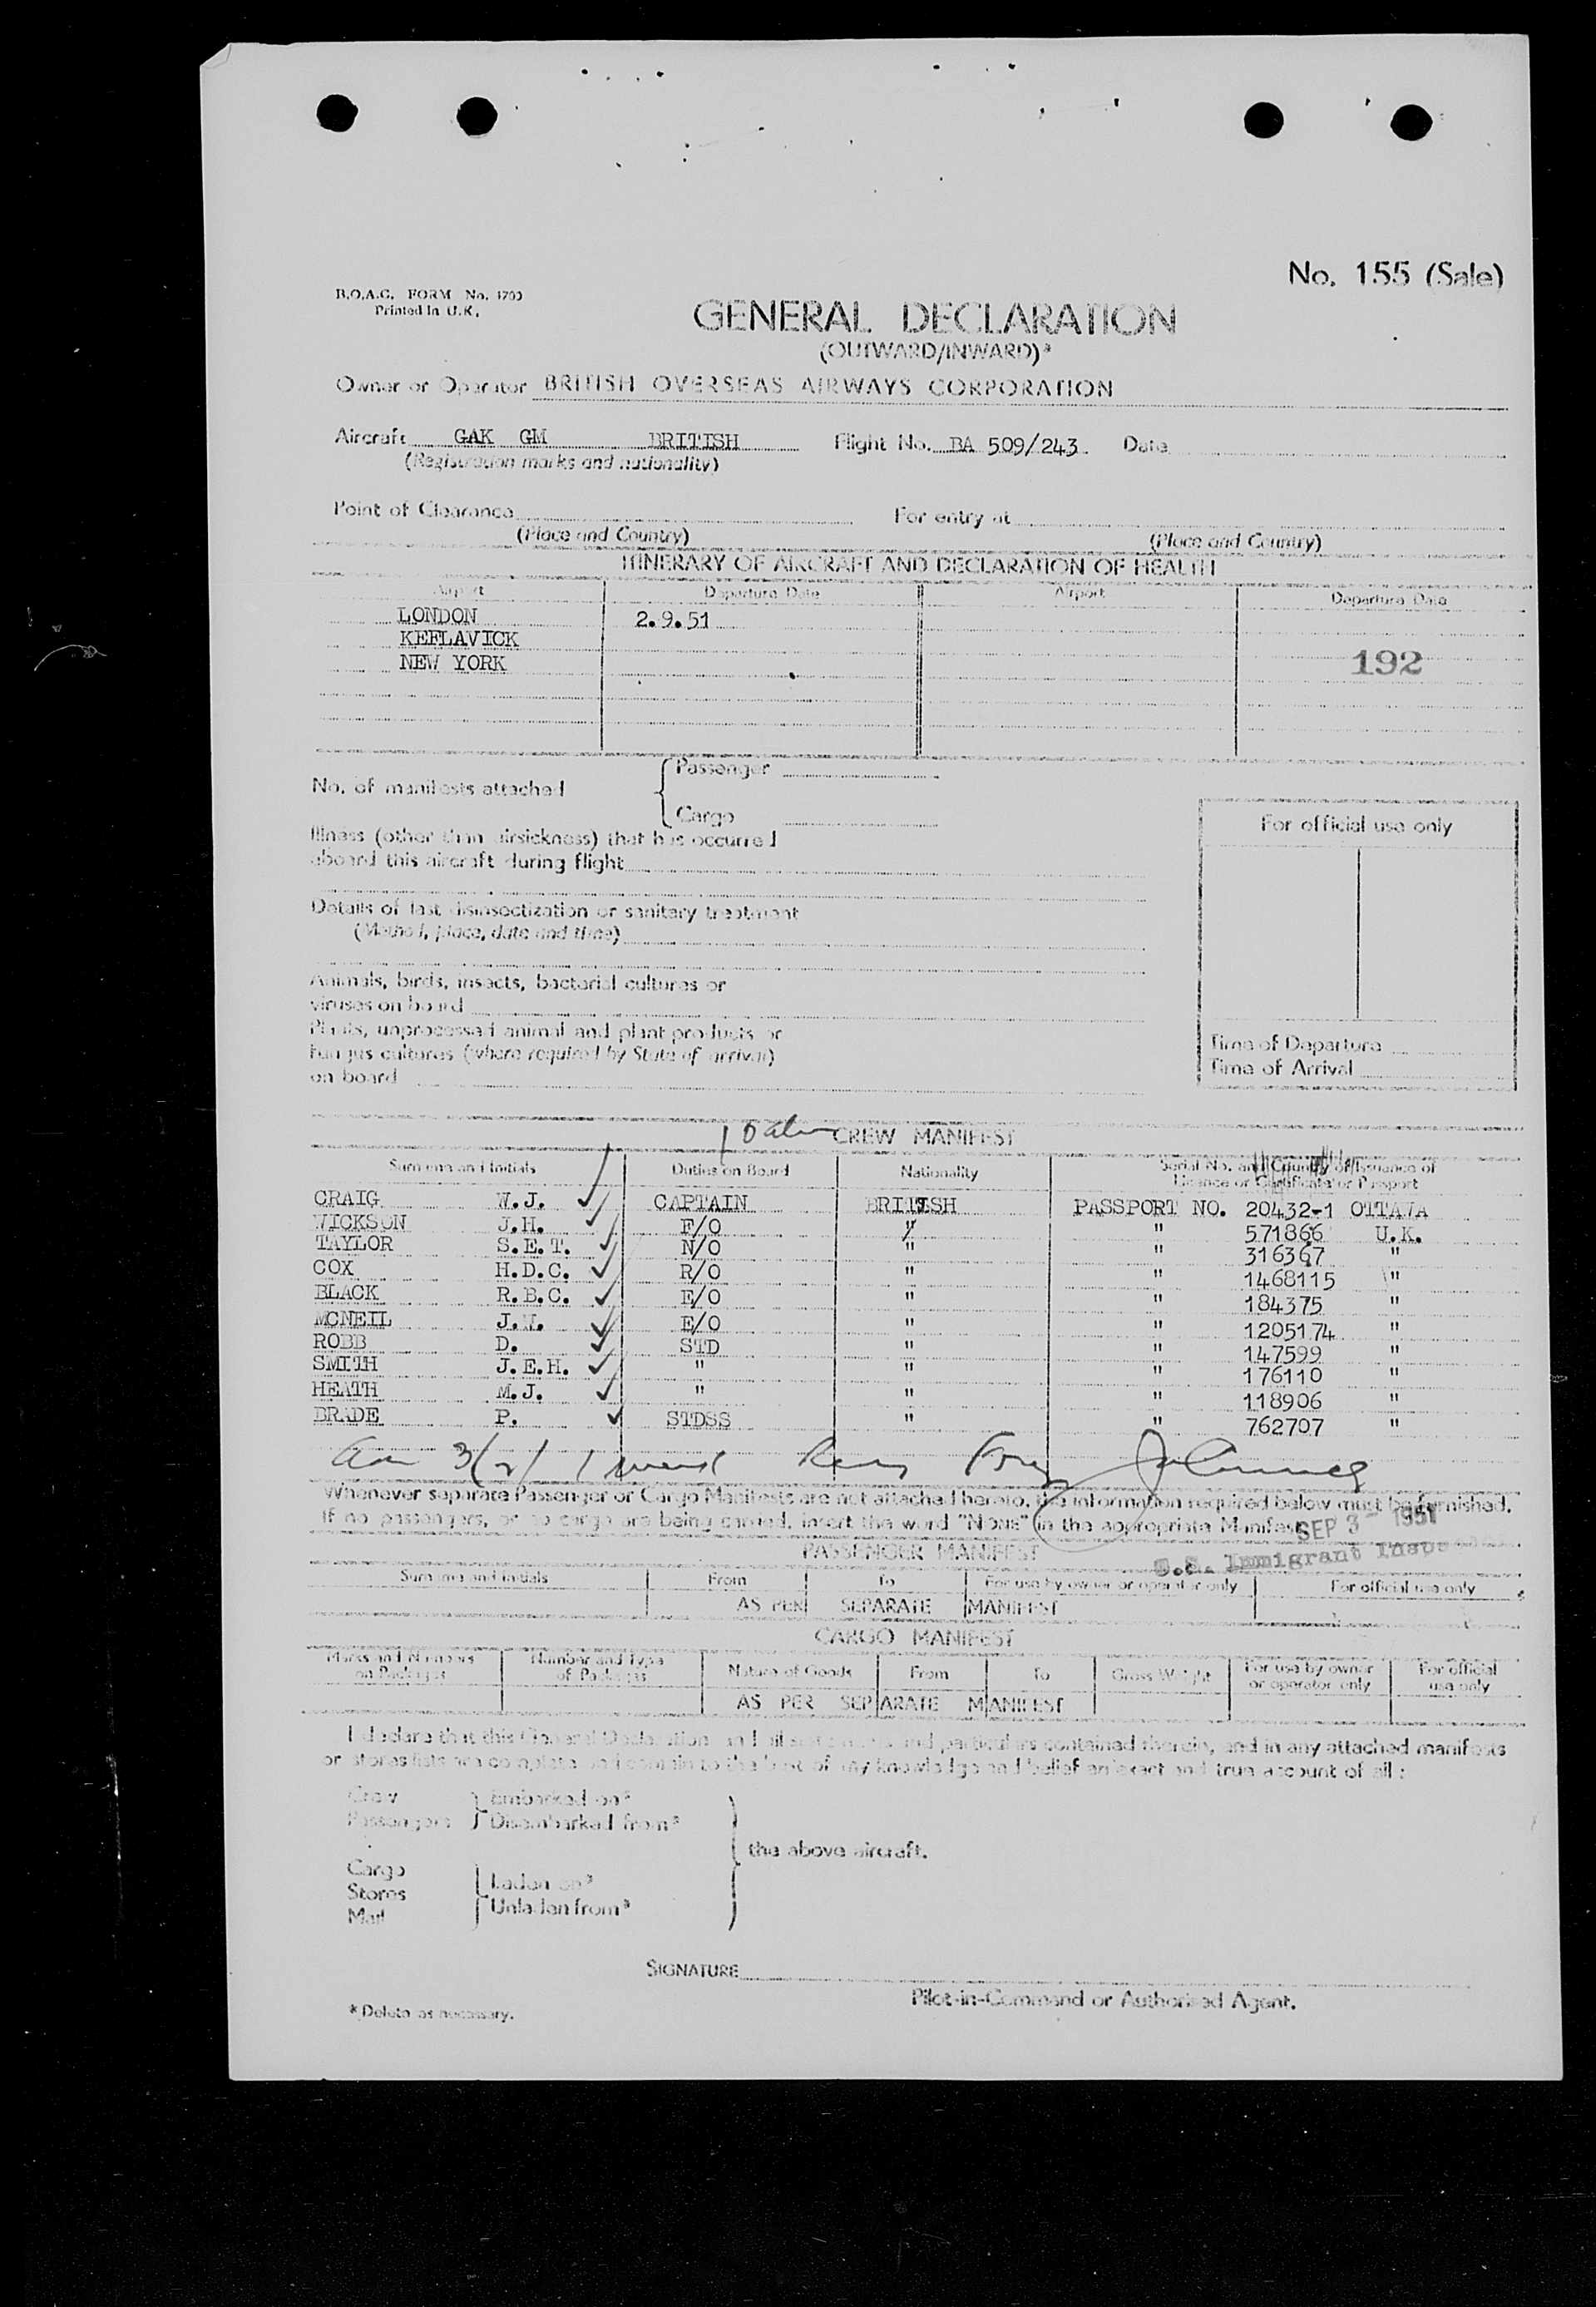 No. 155 (Sale)
B.O.A.C. FORM No. 1703
Printed in U.K.
GENERAL DECLARATION
(OUTWARD/INWARD)*
Owner or Operator BRITISH OVERSEAS AIRWAYS CORPORATION
Aircraft GAK GM BRITISH Flight No. BA 509/243 Date
(Registration marks and nationality)
Point of Clearance For entry at
(Place and Country) (Place and Country)
ITINERARY OF AIRCRAFT AND DECLARATION OF HEALTH
Airport Departure Date Airport Departure Date
LONDON 2.9.51
KEFLAVICK
NEW YORK 192
No. of manifests attached Passenger
Cargo
For official use only
Illness (other than airsickness) that has occurred
aboard this aircraft during flight
Details of last disinsectization or sanitary treatment
(Method, place, date and time)
Animals, birds, insects, bacterial cultures or
viruses on board
Plants, unprocessed animal and plant products or
fungus cultures (where required by State of arrival)
on board
Time of Departure
Time of Arrival
CREW MANIFEST
Surname and Initials Duties on Board Nationality Serial No. and Country of Issuance of
Licence or Certificate or Passport
CRAIG W.J. CAPTAIN BRITISH PASSPORT NO. 20432-1 OTTAWA
WICKSON J.H. F/O " " 571866 U.K.
TAYLOR S.E.T. N/O " " 316367 "
COX H.D.C. R/O " " 1468115 "
BLACK R.B.C. E/O " " 184375 "
MCNEIL J.W. E/O " " 1205174 "
ROBB D. STD " " 147599 "
SMITH J.E.H. " " " 176110 "
HEATH M.J. " " " 118906 "
BRADE P. STDSS " " 762707 "
Whenever separate Passenger or Cargo Manifests are not attached hereto, the information required below must be furnished.
If no passengers, or no cargo are being carried, insert the word "NONE" in the appropriate Manifest.
SEP 3 - 1951
U.S. Immigrant
PASSENGER MANIFEST
Surname and Initials From To For use by owner or operator only For official use only
AS PER SEPARATE MANIFEST
CARGO MANIFEST
Marks and Numbers on Packages Number and Type of Packages Nature of Goods From To Gross Weight For use by owner or operator only For official use only
AS PER SEPARATE MANIFEST
I declare that this General Declaration and all statements and particulars contained therein, and in any attached manifests
or stores lists are complete and contain to the best of my knowledge and belief an exact and true account of all :
Crew Embarked on*
Passengers Disembarked from*
the above aircraft.
Cargo Laden on*
Stores
Mail Unladen from*
SIGNATURE
Pilot-in-Command or Authorised Agent.
*Delete as necessary.